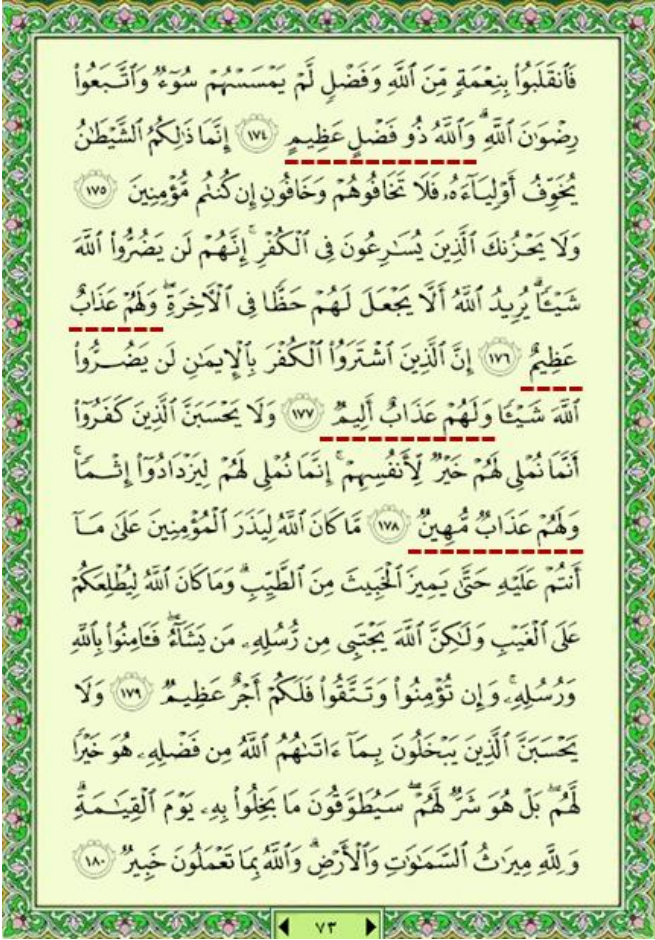 فَٱنقَلَبُوا۟ بِنِعْمَةٍ مِّنَ ٱللَّهِ وَفَضْلٍ لَّمْ يَمْسَسْهُمْ سُوٓءٌ وَٱتَّبَعُوا۟
رِضْوَٰنَ ٱللَّهِ ۗ وَٱللَّهُ ذُو فَضْلٍ عَظِيمٍ ١٧٤ إِنَّمَا ذَٰلِكُمُ ٱلشَّيْطَٰنُ
يُخَوِّفُ أَوْلِيَآءَهُۥ فَلَا تَخَافُوهُمْ وَخَافُونِ إِن كُنتُم مُّؤْمِنِينَ ١٧٥
وَلَا يَحْزُنكَ ٱلَّذِينَ يُسَٰرِعُونَ فِى ٱلْكُفْرِ ۚ إِنَّهُمْ لَن يَضُرُّوا۟ ٱللَّهَ
شَيْـًٔا ۗ يُرِيدُ ٱللَّهُ أَلَّا يَجْعَلَ لَهُمْ حَظًّا فِى ٱلْءَاخِرَةِ ۖ وَلَهُمْ عَذَابٌ
عَظِيمٌ ١٧٦ إِنَّ ٱلَّذِينَ ٱشْتَرَوُا۟ ٱلْكُفْرَ بِٱلْإِيمَٰنِ لَن يَضُرُّوا۟
ٱللَّهَ شَيْـًٔا وَلَهُمْ عَذَابٌ أَلِيمٌ ١٧٧ وَلَا يَحْسَبَنَّ ٱلَّذِينَ كَفَرُوٓا۟
أَنَّمَا نُمْلِى لَهُمْ خَيْرٌ لِّأَنفُسِهِمْ ۚ إِنَّمَا نُمْلِى لَهُمْ لِيَزْدَادُوٓا۟ إِثْمًا ۚ
وَلَهُمْ عَذَابٌ مُّهِينٌ ١٧٨ مَّا كَانَ ٱللَّهُ لِيَذَرَ ٱلْمُؤْمِنِينَ عَلَىٰ مَآ
أَنتُمْ عَلَيْهِ حَتَّىٰ يَمِيزَ ٱلْخَبِيثَ مِنَ ٱلطَّيِّبِ ۗ وَمَا كَانَ ٱللَّهُ لِيُطْلِعَكُمْ
عَلَى ٱلْغَيْبِ وَلَٰكِنَّ ٱللَّهَ يَجْتَبِى مِن رُّسُلِهِۦ مَن يَشَآءُ ۖ فَـَٔامِنُوا۟ بِٱللَّهِ
وَرُسُلِهِۦ ۚ وَإِن تُؤْمِنُوا۟ وَتَتَّقُوا۟ فَلَكُمْ أَجْرٌ عَظِيمٌ ١٧٩ وَلَا
يَحْسَبَنَّ ٱلَّذِينَ يَبْخَلُونَ بِمَآ ءَاتَىٰهُمُ ٱللَّهُ مِن فَضْلِهِۦ هُوَ خَيْرًا
لَّهُم ۖ بَلْ هُوَ شَرٌّ لَّهُمْ ۖ سَيُطَوَّقُونَ مَا بَخِلُوا۟ بِهِۦ يَوْمَ ٱلْقِيَٰمَةِ ۗ
وَلِلَّهِ مِيرَٰثُ ٱلسَّمَٰوَٰتِ وَٱلْأَرْضِ ۗ وَٱللَّهُ بِمَا تَعْمَلُونَ خَبِيرٌ ١٨٠
٧٣